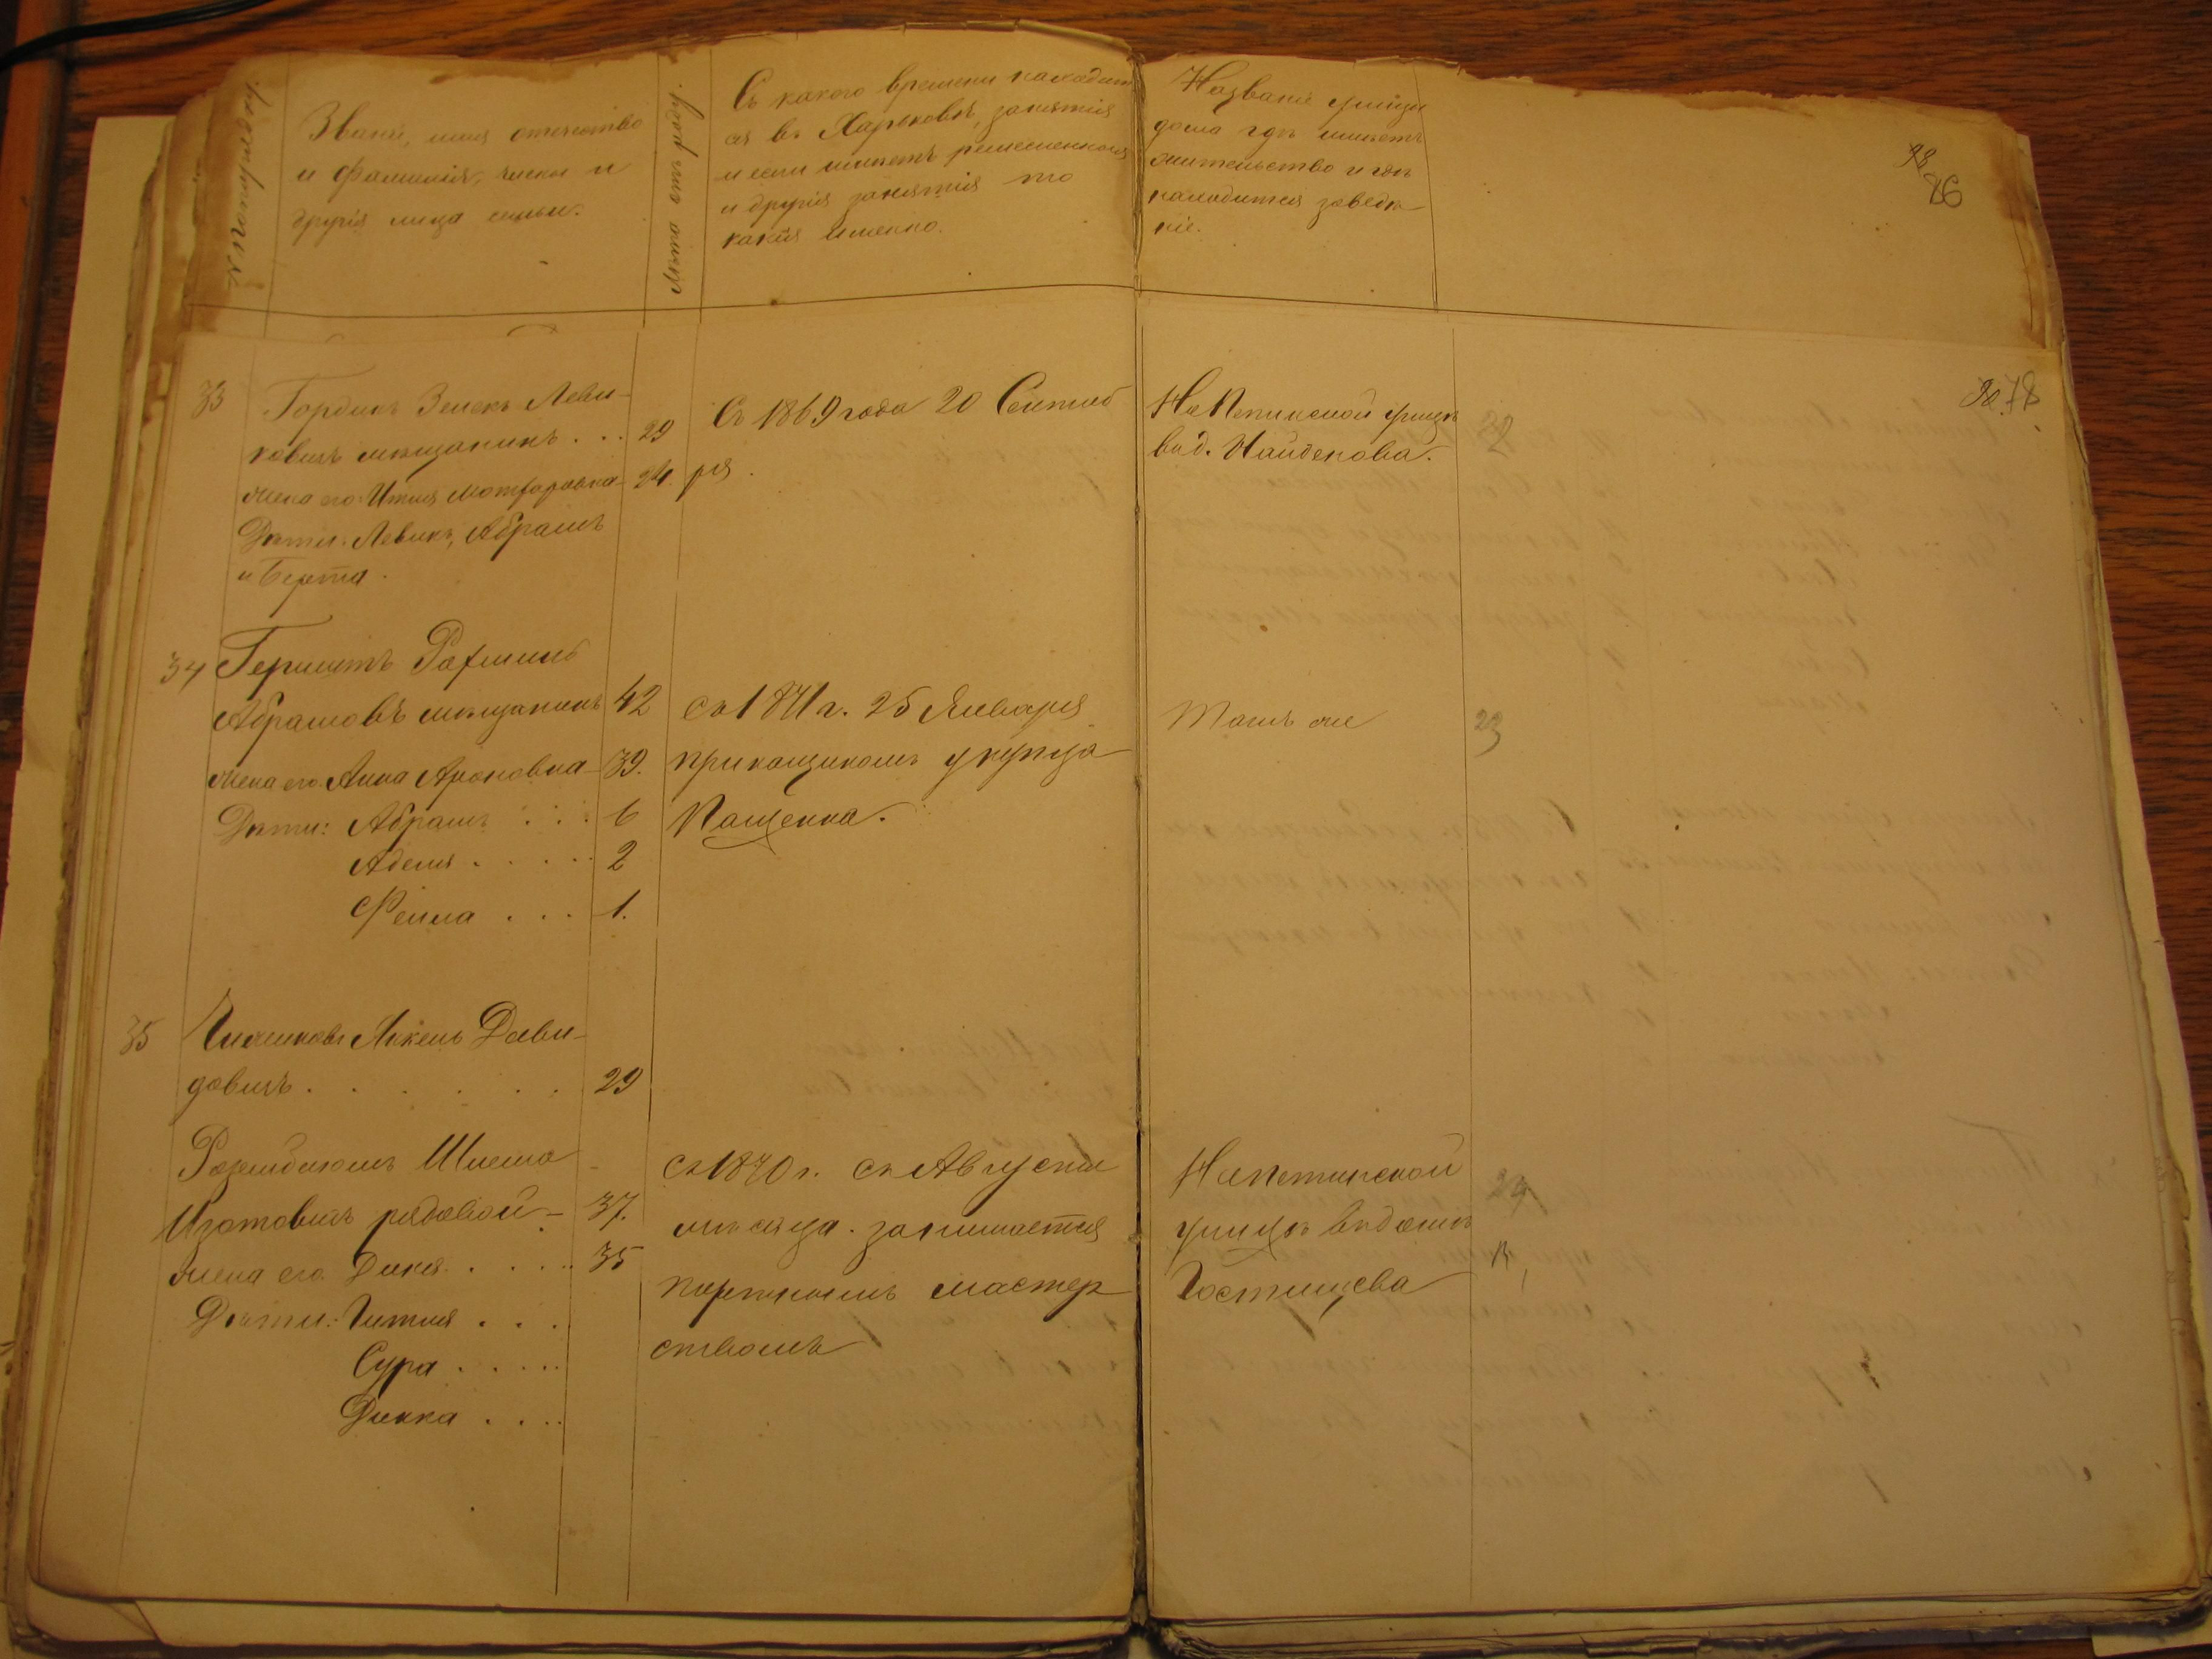 № по порядку.
Званіе, имя отчество
и фамилія, члены и
другія лица семьи.
Сколько отъ роду.
Съ какого времени находит
ся въ Харьковѣ, занятія
и если имѣетъ ремесленныя
и другія занятія то
какія именно.
Названіе улицы
дома гдѣ имѣетъ
жительство и гдѣ
находится заведе-
ніе.
86
78
33
Гординъ Зелекъ Леви-
ковичъ мѣщанинъ . . . 29
жена его Итля 24.
Дѣти: Левикъ, Абрамъ
и Берта.
Съ 1869 года 20 Сентяб
ря.
На Петинской улицѣ
въ д. Найденова.
34
Гершетъ
Абрамовъ мѣщанинъ 42
жена его Анна Ароновна 39.
Дѣти: Абрамъ . . . 6
Аделя . . . . . 2
Фейга . . . 1.
съ 1871 г. 25 Января
прикащикомъ у купца
Пащенка.
Тамъ же
23
35
Давы-
довичъ . . . . . . 29
Розенблюмъ Шлема
Изотовичъ рядовой - 37.
жена его Диня . . . . . 35
Дѣти: Гитля . . .
Сура . . . . .
Динка . . . .
съ 1870 г. съ Августа
мѣсяца. занимается
портнымъ мастер
ствомъ
На Петинской
улицѣ въ домѣ
Гостищева
24